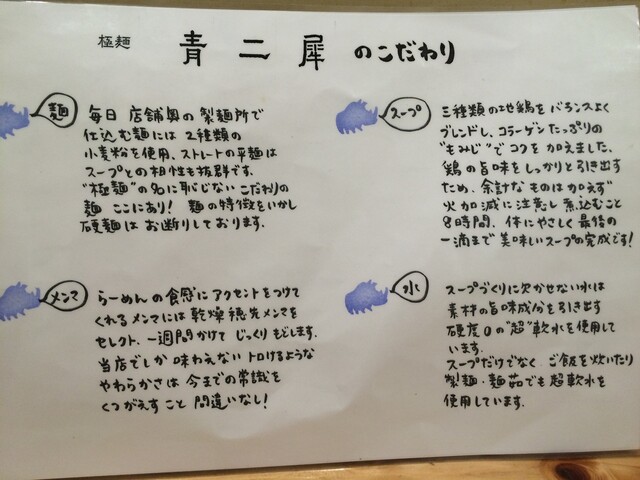 極麺 青二犀 のこだわり
麺
毎日 店舗奥の製麺所で
仕込む麺には 2種類の
小麦粉を使用、ストレートの平麺は
スープとの相性も抜群です。
"極麺"の名に恥じない こだわりの
麺 ここにあり! 麺の特徴をいかし
硬麺は お断りしております。
スープ
三種類の地鶏を バランスよく
ブレンドし、コラーゲンたっぷりの
"もみじ"でコクを加えました。
鶏の旨味をしっかりと引き出す
ため、余計なものは加えず
火加減に注意し煮込むこと
8時間、体にやさしく 最後の
一滴まで 美味しいスープの完成です!
メンマ
らーめんの食感に アクセントをつけて
くれるメンマには 乾燥穂先メンマを
セレクト、一週間かけて じっくりもどします。
当店でしか 味わえない トロけるような
やわらかさは 今までの常識を
くつがえすこと 間違いなし!
水
スープづくりに欠かせない水は
素材の旨味成分を引き出す
硬度0の"超"軟水を使用して
います。
スープだけでなく ご飯を炊いたり
製麺・麺茹でも超軟水を
使用しています。